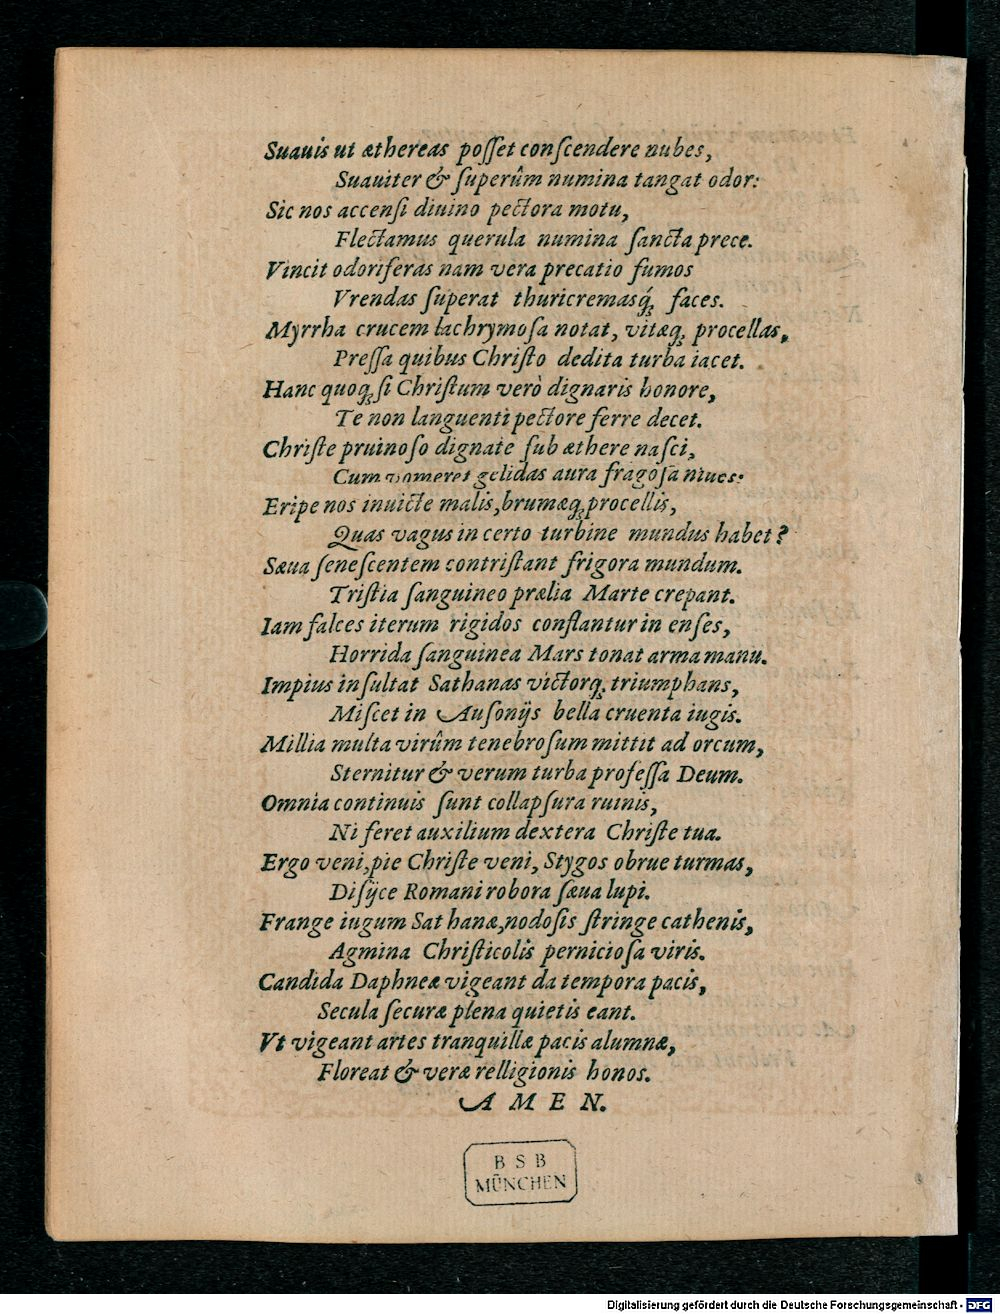 Suauis ut æthereas poſſet conſcendere nubes,
Suauiter & ſuperûm numina tangat odor:
Sic nos accenſi diuino pectora motu,
Flectamus querula numina ſancta prece.
Vincit odoriferas nam vera precatio fumos
Vrendas ſuperat thuricremasq́ꝫ faces.
Myrrha crucem lachrymoſa notat, vitæqꝫ procellas,
Preſſa quibus Chriſto dedita turba iacet.
Hanc quoqꝫ ſi Chriſtum verò dignaris honore,
Te non languenti pectore ferre decet.
Chriſte pruinoſo dignate ſub æthere naſci,
Cum vomeret gelidas aura fragoſa niues:
Eripe nos inuicte malis, brumæqꝫ procellis,
Quas vagus in certo turbine mundus habet?
Sæua ſeneſcentem contriſtant frigora mundum.
Triſtia ſanguineo prælia Marte crepant.
Iam falces iterum rigidos conflantur in enſes,
Horrida ſanguinea Mars tonat arma manu.
Impius inſultat Sathanas victorqꝫ triumphans,
Miſcet in Auſonijs bella cruenta iugis.
Millia multa virûm tenebroſum mittit ad orcum,
Sternitur & verum turba profeſſa Deum.
Omnia continuis ſunt collapſura ruinis,
Ni feret auxilium dextera Chriſte tua.
Ergo veni, pie Chriſte veni, Stygos obrue turmas,
Diſijce Romani robora ſæua lupi.
Frange iugum Sathanæ, nodoſis ſtringe cathenis,
Agmina Chriſticolis pernicioſa viris.
Candida Daphneæ vigeant da tempora pacis,
Secula ſecuræ plena quietis eant.
Vt vigeant artes tranquillæ pacis alumnæ,
Floreat & veræ relligionis honos.
A M E N.
B S B
MÜNCHEN
Digitalisierung gefördert durch die Deutsche Forschungsgemeinschaft - DFG